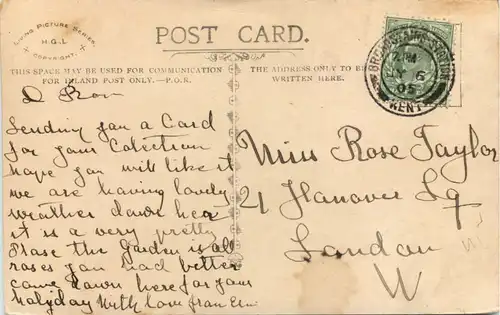 LIVING PICTURE SERIES
H.G.L
COPYRIGHT.
POST CARD.
THIS SPACE MAY BE USED FOR COMMUNICATION
FOR INLAND POST ONLY.—P.O.R.
THE ADDRESS ONLY TO BE
WRITTEN HERE.
BROADSTAIRS STATION
PM
6
05
KENT
D Rose
Sending you a Card
for your Colection
hope you will like it
we are having lovely
weather down here
it is a very pretty
Plase the Garden is all
roses you had better
came down here for your
holyday With love from Em
Miss Rose Taylor
21 Hanover Sq
London
W